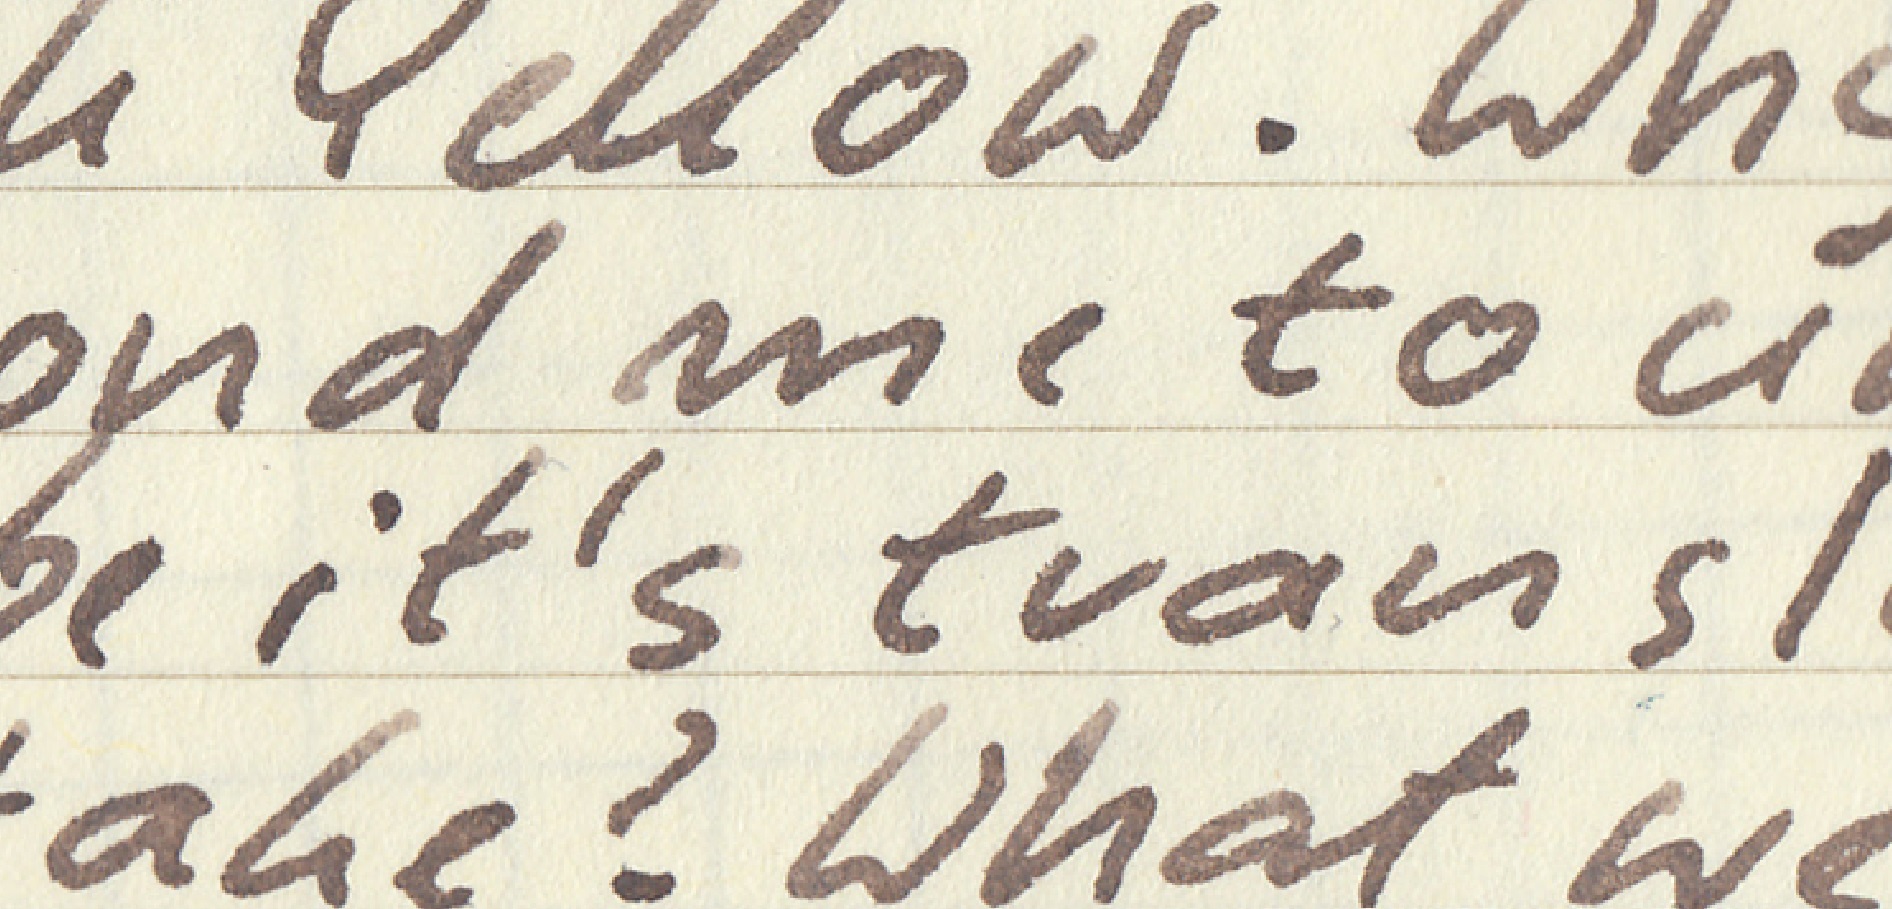 Yellow. Whe
ond me to
be it's transl
take? What we